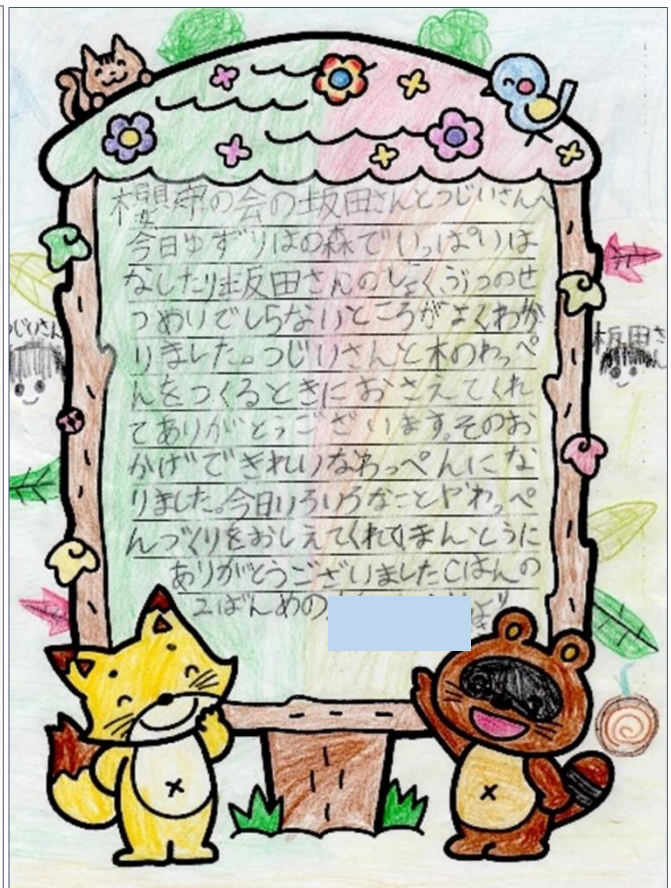 櫻守の会の坂田さんとつじいさんへ
今日ゆずりはの森でいっぱいは
なしたり坂田さんのしょくぶつのせ
つめいでしらないところがよくわか
りました。つじいさんと木のわっぺ
んをつくるときにおさえてくれ
てありがとうございます。そのお
かげできれいなわっぺんにな
りました。今日いろいろなことやわっぺ
んづくりをおしえてくれてほんとうに
ありがとうございましたCはんの
2ばんめの
じいさん
坂田さん